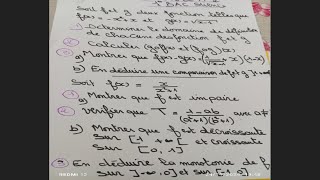 1 BAC
Soit f et g deux fonction telles que
f(x) = -x²+x et g(x) = √x-1
1 Determiner le domaine de
de chacune des fonction f et g
2 Calculer (gof)(x) et (fog)(x)
3 a) Montrer que f(x)-g(x)=
b) En déduire une comparaison de f et g
Soit f(x) = x/x²+1
1 Montrer que f est impaire
2 a) Vérifier que T = 1-ab/(a²+1)(b²+1) avec a≠
b) Montrer que f est décroissante
Sur [1 +∞[ et croissante
Sur [0, 1]
3 En déduire la monotonie de f
Sur ]-∞,0] et sur [-1 0]